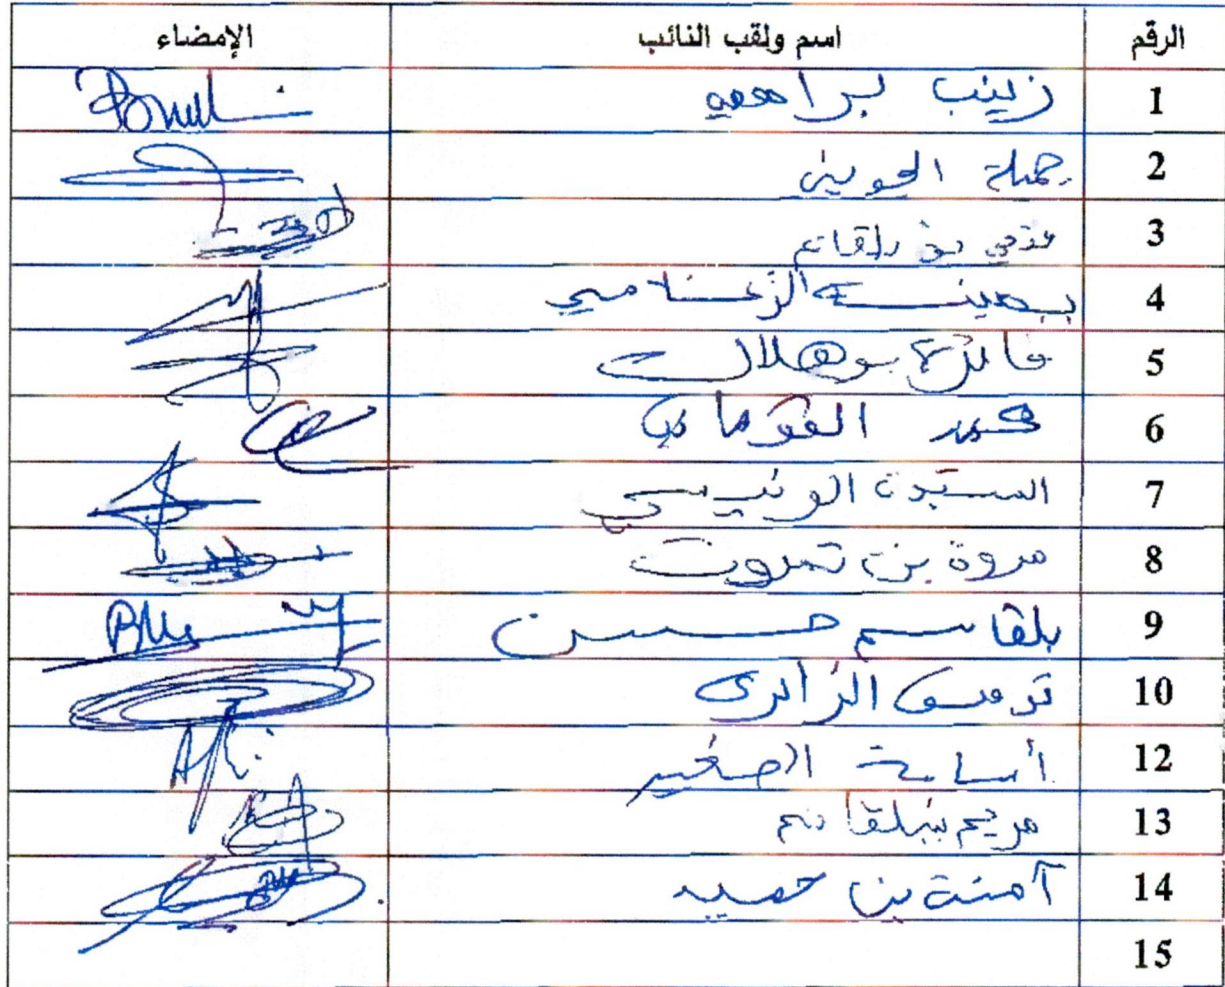 الرقم اسم ولقب النائب الإمضاء
1 زينب براهمي
2 جميلة الجويني
3 فتحي بن بلقاسم
4 يمينة الزغلامي
5 فائزة بوهلال
6 محمد القوماني
7 السيدة الونيسي
8 مروة بن تمروت
9 بلقاسم حسن
10 توفيق الزائري
12 أسامة الصغير
13 مريم بنبلقاسم
14 آمنة بن حميد
15